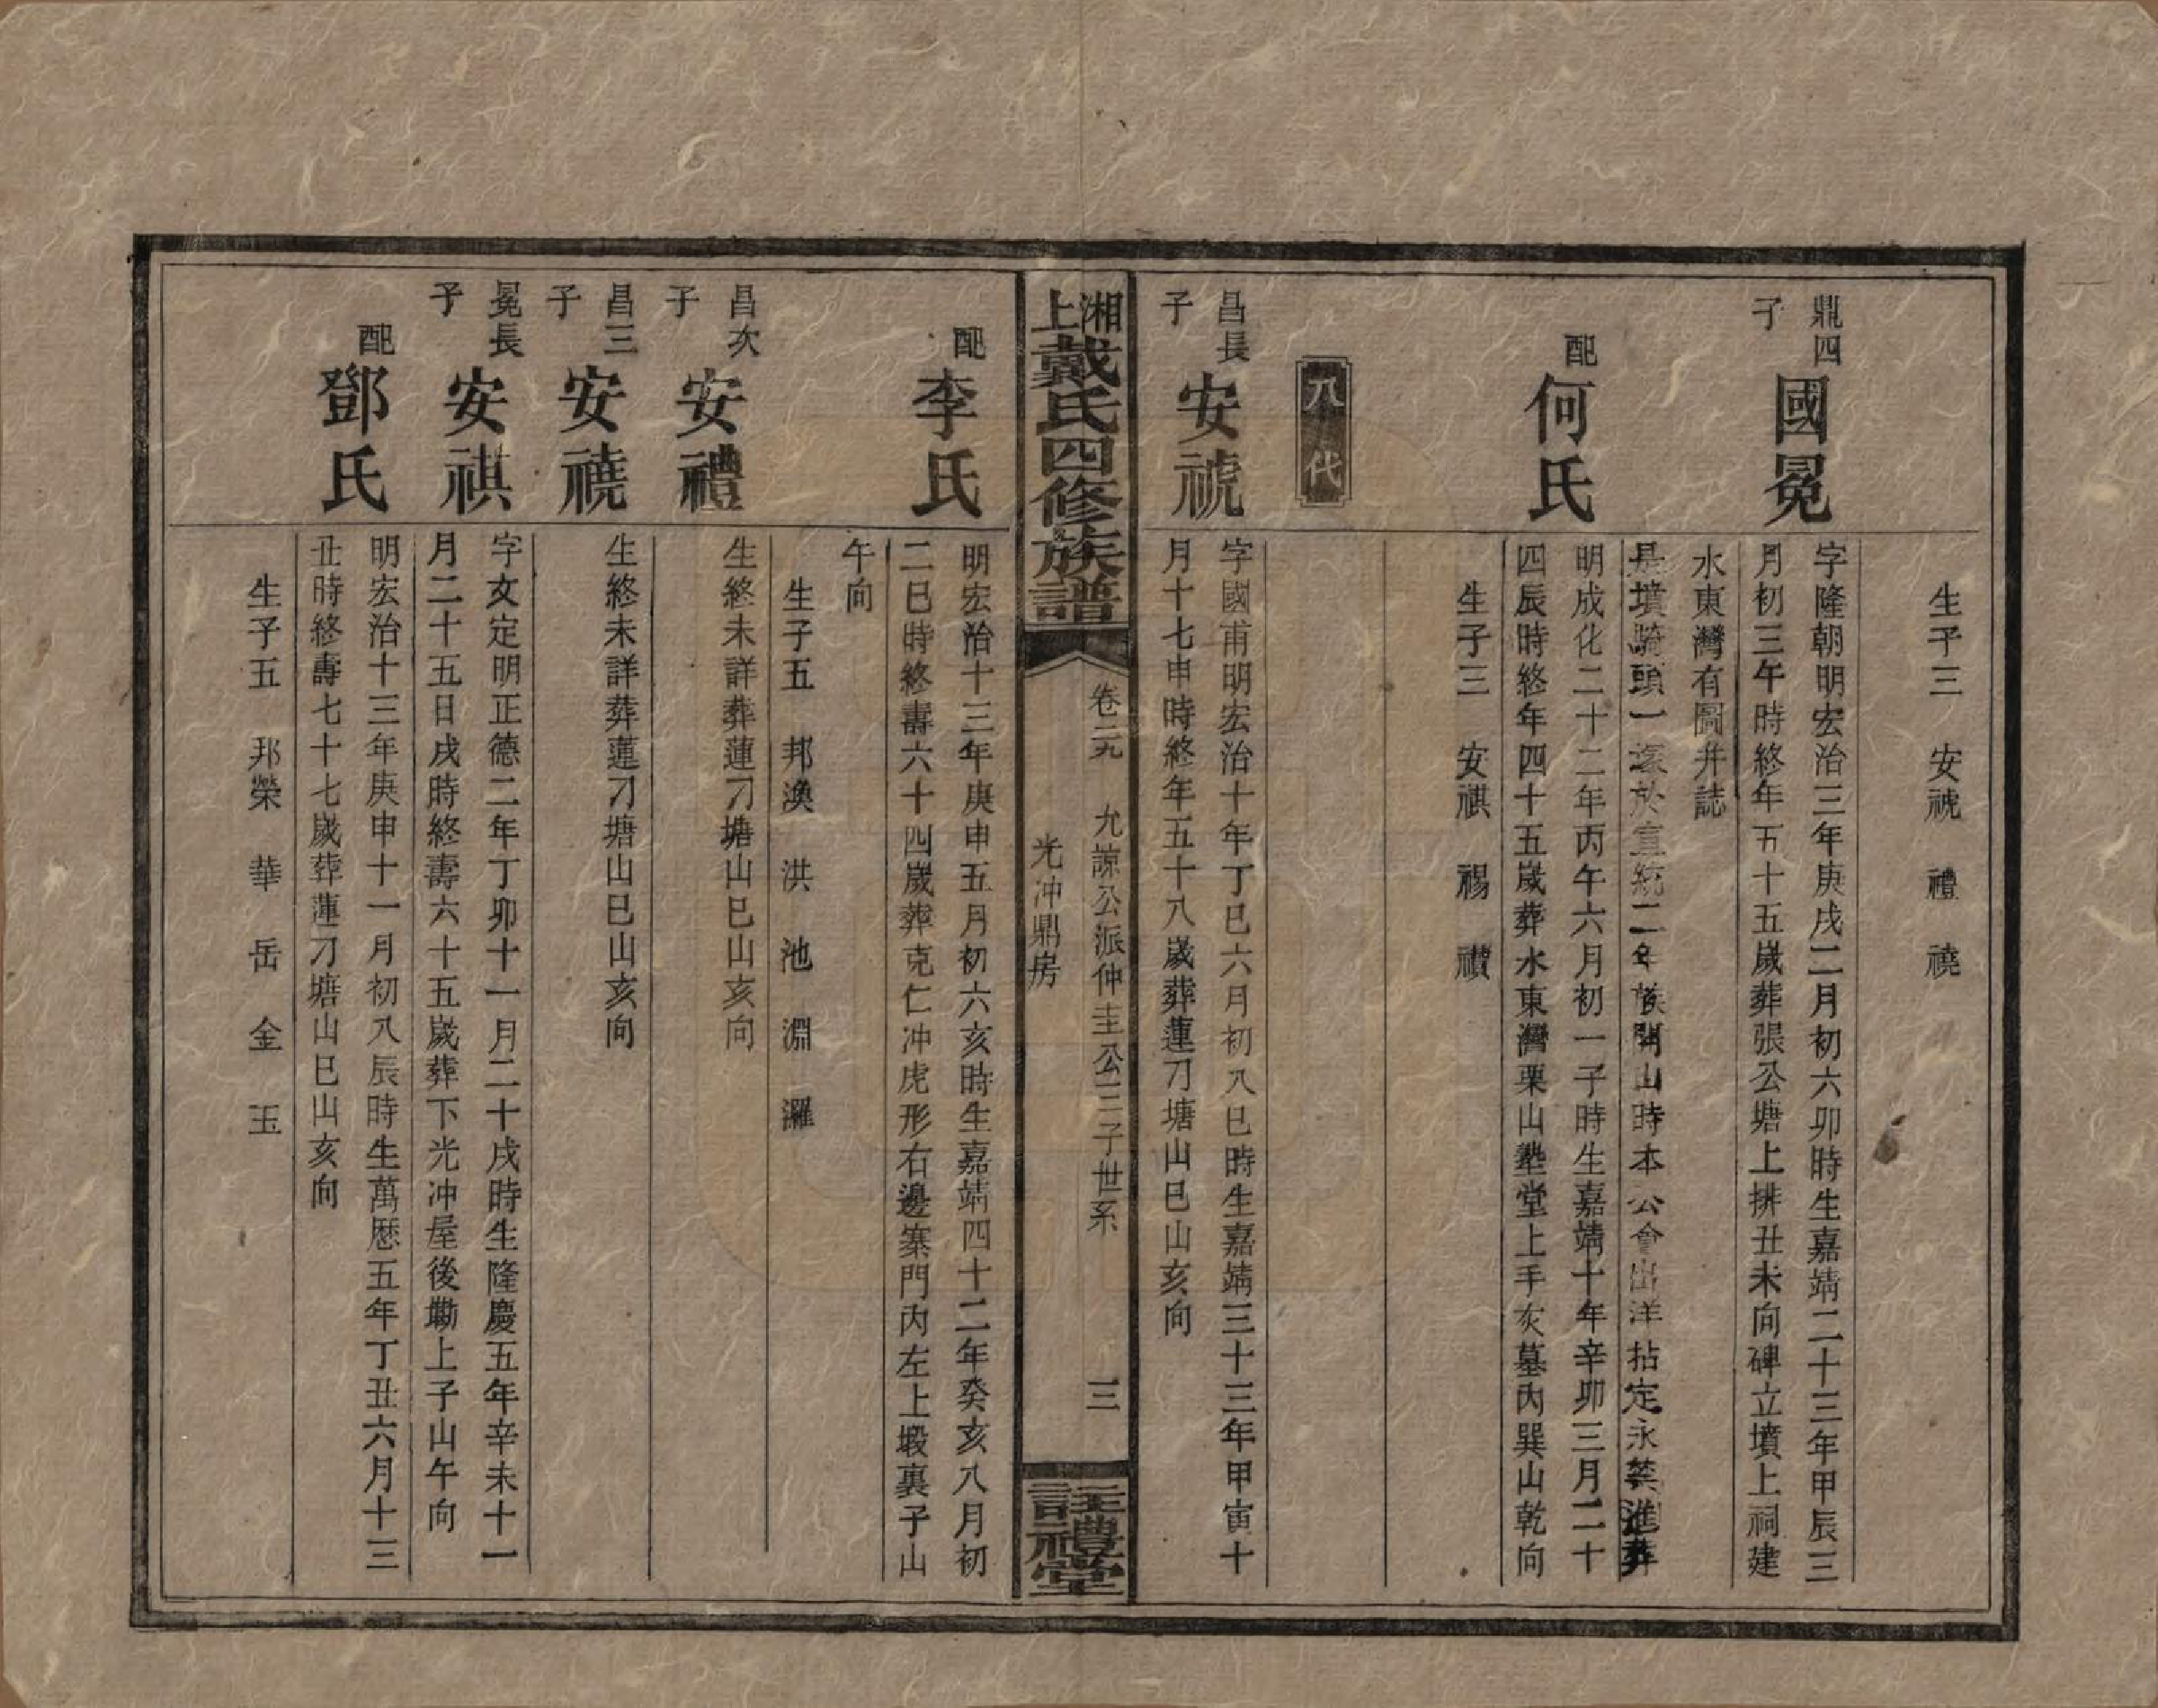 生子三　安禠　禮　禬
鼎四子
國冕
字隆朝明宏治三年庚戌二月初六卯時生嘉靖二十三年甲辰三
月初三午時終年五十五歲葬張公塘上排丑未向碑立墳上祠建
水東灣有圖并誌
配
何氏
是墳騎頭一塚於宣統二年族開山時本公會出洋拈定永禁進葬
明成化二十二年丙午六月初一子時生嘉靖十年辛卯三月二十
四辰時終年四十五歲葬水東灣栗山塾堂上手亥墓內巽山乾向
生子三　安祺　禓　禶
八代
昌長子
安禠
字國甫明宏治十年丁巳六月初八巳時生嘉靖三十三年甲寅十
月十七申時終年五十八歲葬蓮刀塘山巳山亥向
湘上戴氏四修族譜
卷二九　允諒公派仲圭公三子世系
光冲鼎房
三
註禮堂
配
李氏
明宏治十三年庚申五月初六亥時生嘉靖四十二年癸亥八月初
二巳時終壽六十四歲葬克仁冲虎形右邊寨門內左上塅裏子山
午向
生子五　邦渙　洪　池　淵　㶍
昌次子
安禮
生終未詳葬蓮刀塘山巳山亥向
昌三子
安襓
生終未詳葬蓮刀塘山巳山亥向
冕長子
安祺
字文定明正德二年丁卯十一月二十戌時生隆慶五年辛未十一
月二十五日戌時終壽六十五歲葬下光冲屋後墈上子山午向
配
鄧氏
明宏治十三年庚申十一月初八辰時生萬歷五年丁丑六月十三
丑時終壽七十七歲葬蓮刀塘山巳山亥向
生子五　邦榮　華　岳　金　玉